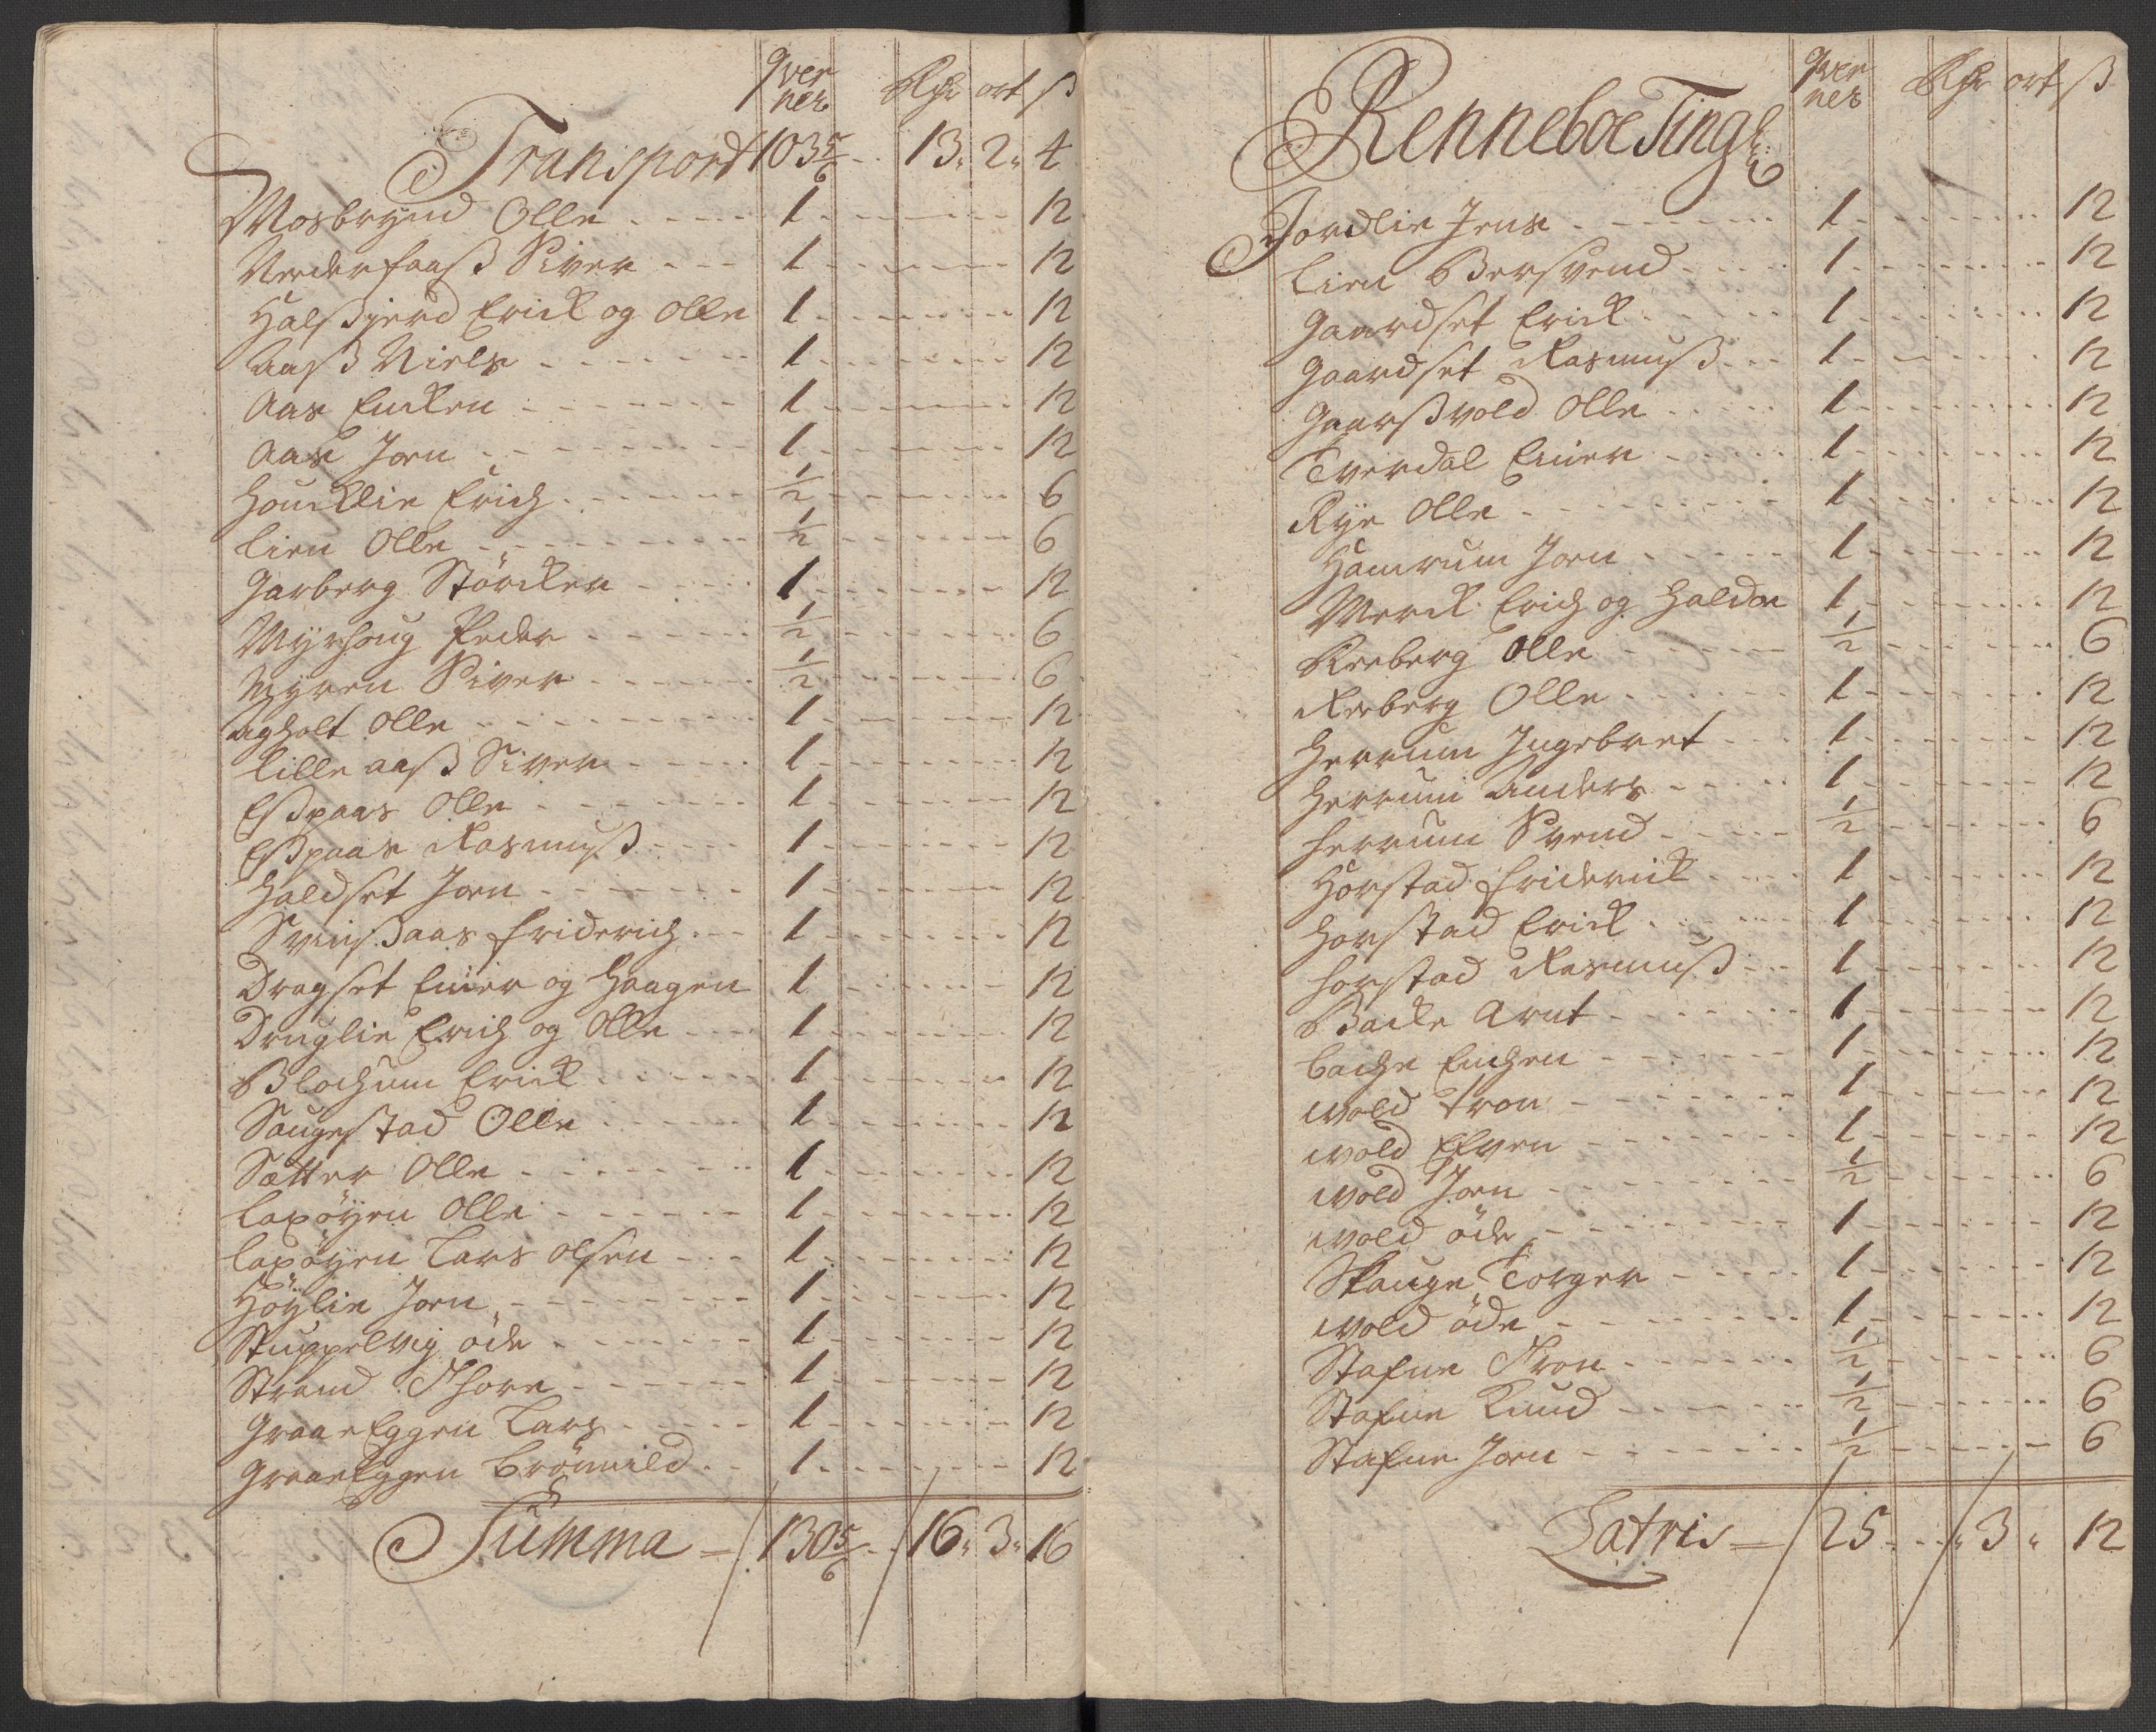 qver
ner Rdr ort ß
Transport 103 5/6 13 " 2 " 4
Mosbrynd Olle 1 12
Nerderfaaß Siver 1 12
Halßjerd Erick og Olle 1 12
Aaß Niels 1 12
Aas Encken 1 12
Aas Joen 1 12
Houcklie Erich 1/2 6
Lien Olle 1/2 6
Garberg Störcker 1 12
Myrhoug Peder 1/2 6
Myren Siver 1/2 6
Agholt Olle 1 12
Lille aaß Siver 1 12
Eßpaas Olle 1 12
Eßpaas Rasmuß 1 12
Haldset Joen 1 12
Svinßaas Friderich 1 12
Dragset Einer og Haagen 1 12
Druglie Erich og Olle 1 12
Blochum Erick 1 12
Saugestad Olle 1 12
Sætter Olle 1 12
Laxöyen Olle 1 12
Laxöyen Lars Olsen 1 12
Höylie Joen 1 12
Skuppelvig öde 1 12
Strand Thore 1 12
Graae Eggen Lars 1 12
Graae Eggen Brönnild 1 12
Summa 130 5/6 16 " 3 " 16
qver
ner Rdr ort ß
Renneboe Tingl
Jordlie Jens 1 12
Lien Bersvend 1 12
Gaardset Erick 1 12
Gaardset Rasmuß 1 12
Gaarßvold Olle 1 12
Tverdal Einer 1 12
Rye Olle 1 12
Hamrum Joen 1 12
Merck Erich og Haldor 1 12
Reeberg Olle 1/2 6
Reeberg Olle 1 12
Herrum Ingebret 1 12
Herrum Anders 1 12
Herrum Svend 1/2 6
Horstad Friderick 1 12
Horstad Erick 1 12
Horstad Rasmuß 1 12
Backe Arnt 1 12
Bache Enchen 1 12
Wold Tron 1 12
Wold Efven 1 12
Wold Joen 1/2 6
Wold öde 1 12
Skauge Torger 1 12
Wold öde 1 12
Stafne Tron 1/2 6
Stafne Knud 1/2 6
Stafne Joen 1/2 6
Latris 25 " 3 " 12